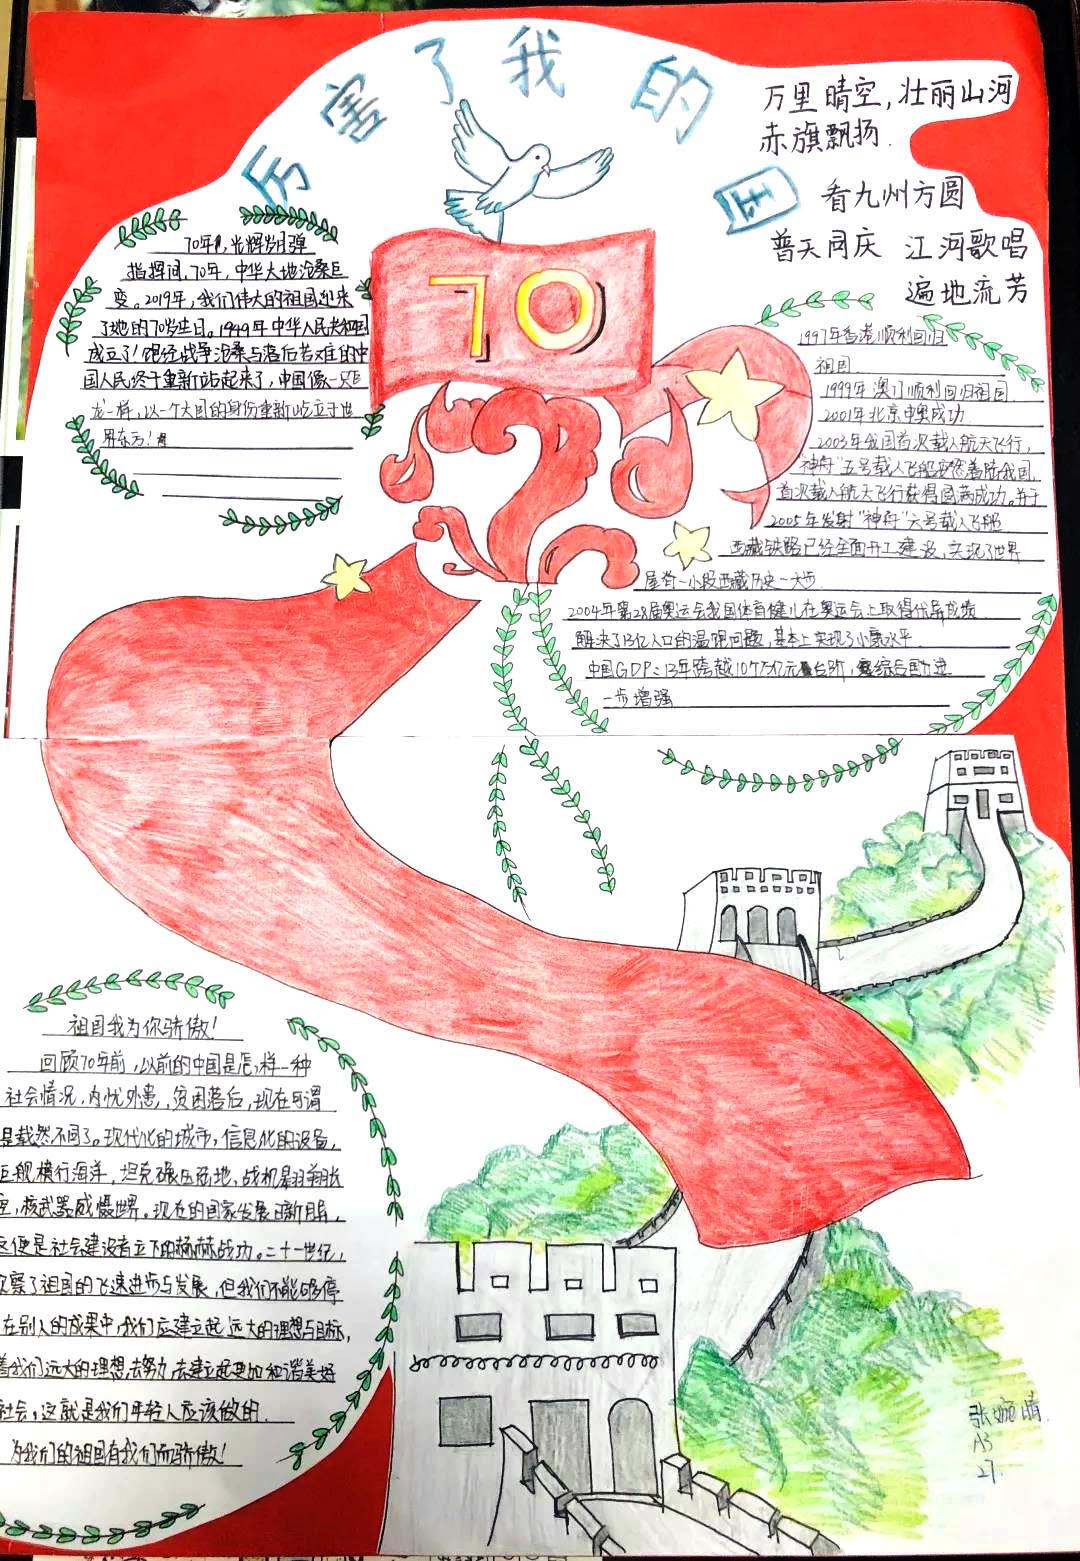 厉害了我的国
万里晴空，壮丽山河
赤旗飘扬.
看九州方圆
普天同庆 江河歌唱
遍地流芳
70
70年,光辉岁月弹
指挥间,70年,中华大地沧桑巨
变。2019年,我们伟大的祖国迎来
了她的70岁生日。1949年中华人民共和国
成立了！饱经战争沧桑与落后苦难的中
国人民终于重新站起来了,中国像一只巨
龙一样,以一个大国的身份重新屹立于世
界东方！
1997年香港顺利回归
祖国.
1999年澳门顺利回归祖国.
2001年北京申奥成功.
2003年我国首次载人航天飞行,
"神舟"五号载人飞船安然着陆我国,
首次载人航天飞行获得圆满成功。并于
2005年发射"神舟"六号载人飞船
西藏铁路已经全面开工建设,实现了世界
屋脊一小段西藏历史一大步.
2004年第28届奥运会我国体育健儿在奥运会上取得优异成绩
解决了13亿人口的温饱问题,基本上实现了小康水平.
中国GDP:13年跨越10个万亿元台阶,综合国力进
一步增强
祖国我为你骄傲！
回顾70年前,以前的中国是怎样一种
社会情况,内忧外患,贫困落后,现在可谓
是截然不同了。现代化的城市,信息化的设备,
巨舰横行海洋,坦克碾压西地,战机翱翔长
空,核武器威慑世界。现在的国家发展日新月异,
这便是社会建设者立下的赫赫战功。二十一世纪,
察了祖国的飞速进步与发展,但我们不能够停
在别人的成果中,我们应建立起远大的理想与目标,
着我们远大的理想,去努力,去建立起更加和谐美好
社会,这就是我们年轻人应该做的.
为我们的祖国有我们而骄傲！
张婉晴.
A3
27.